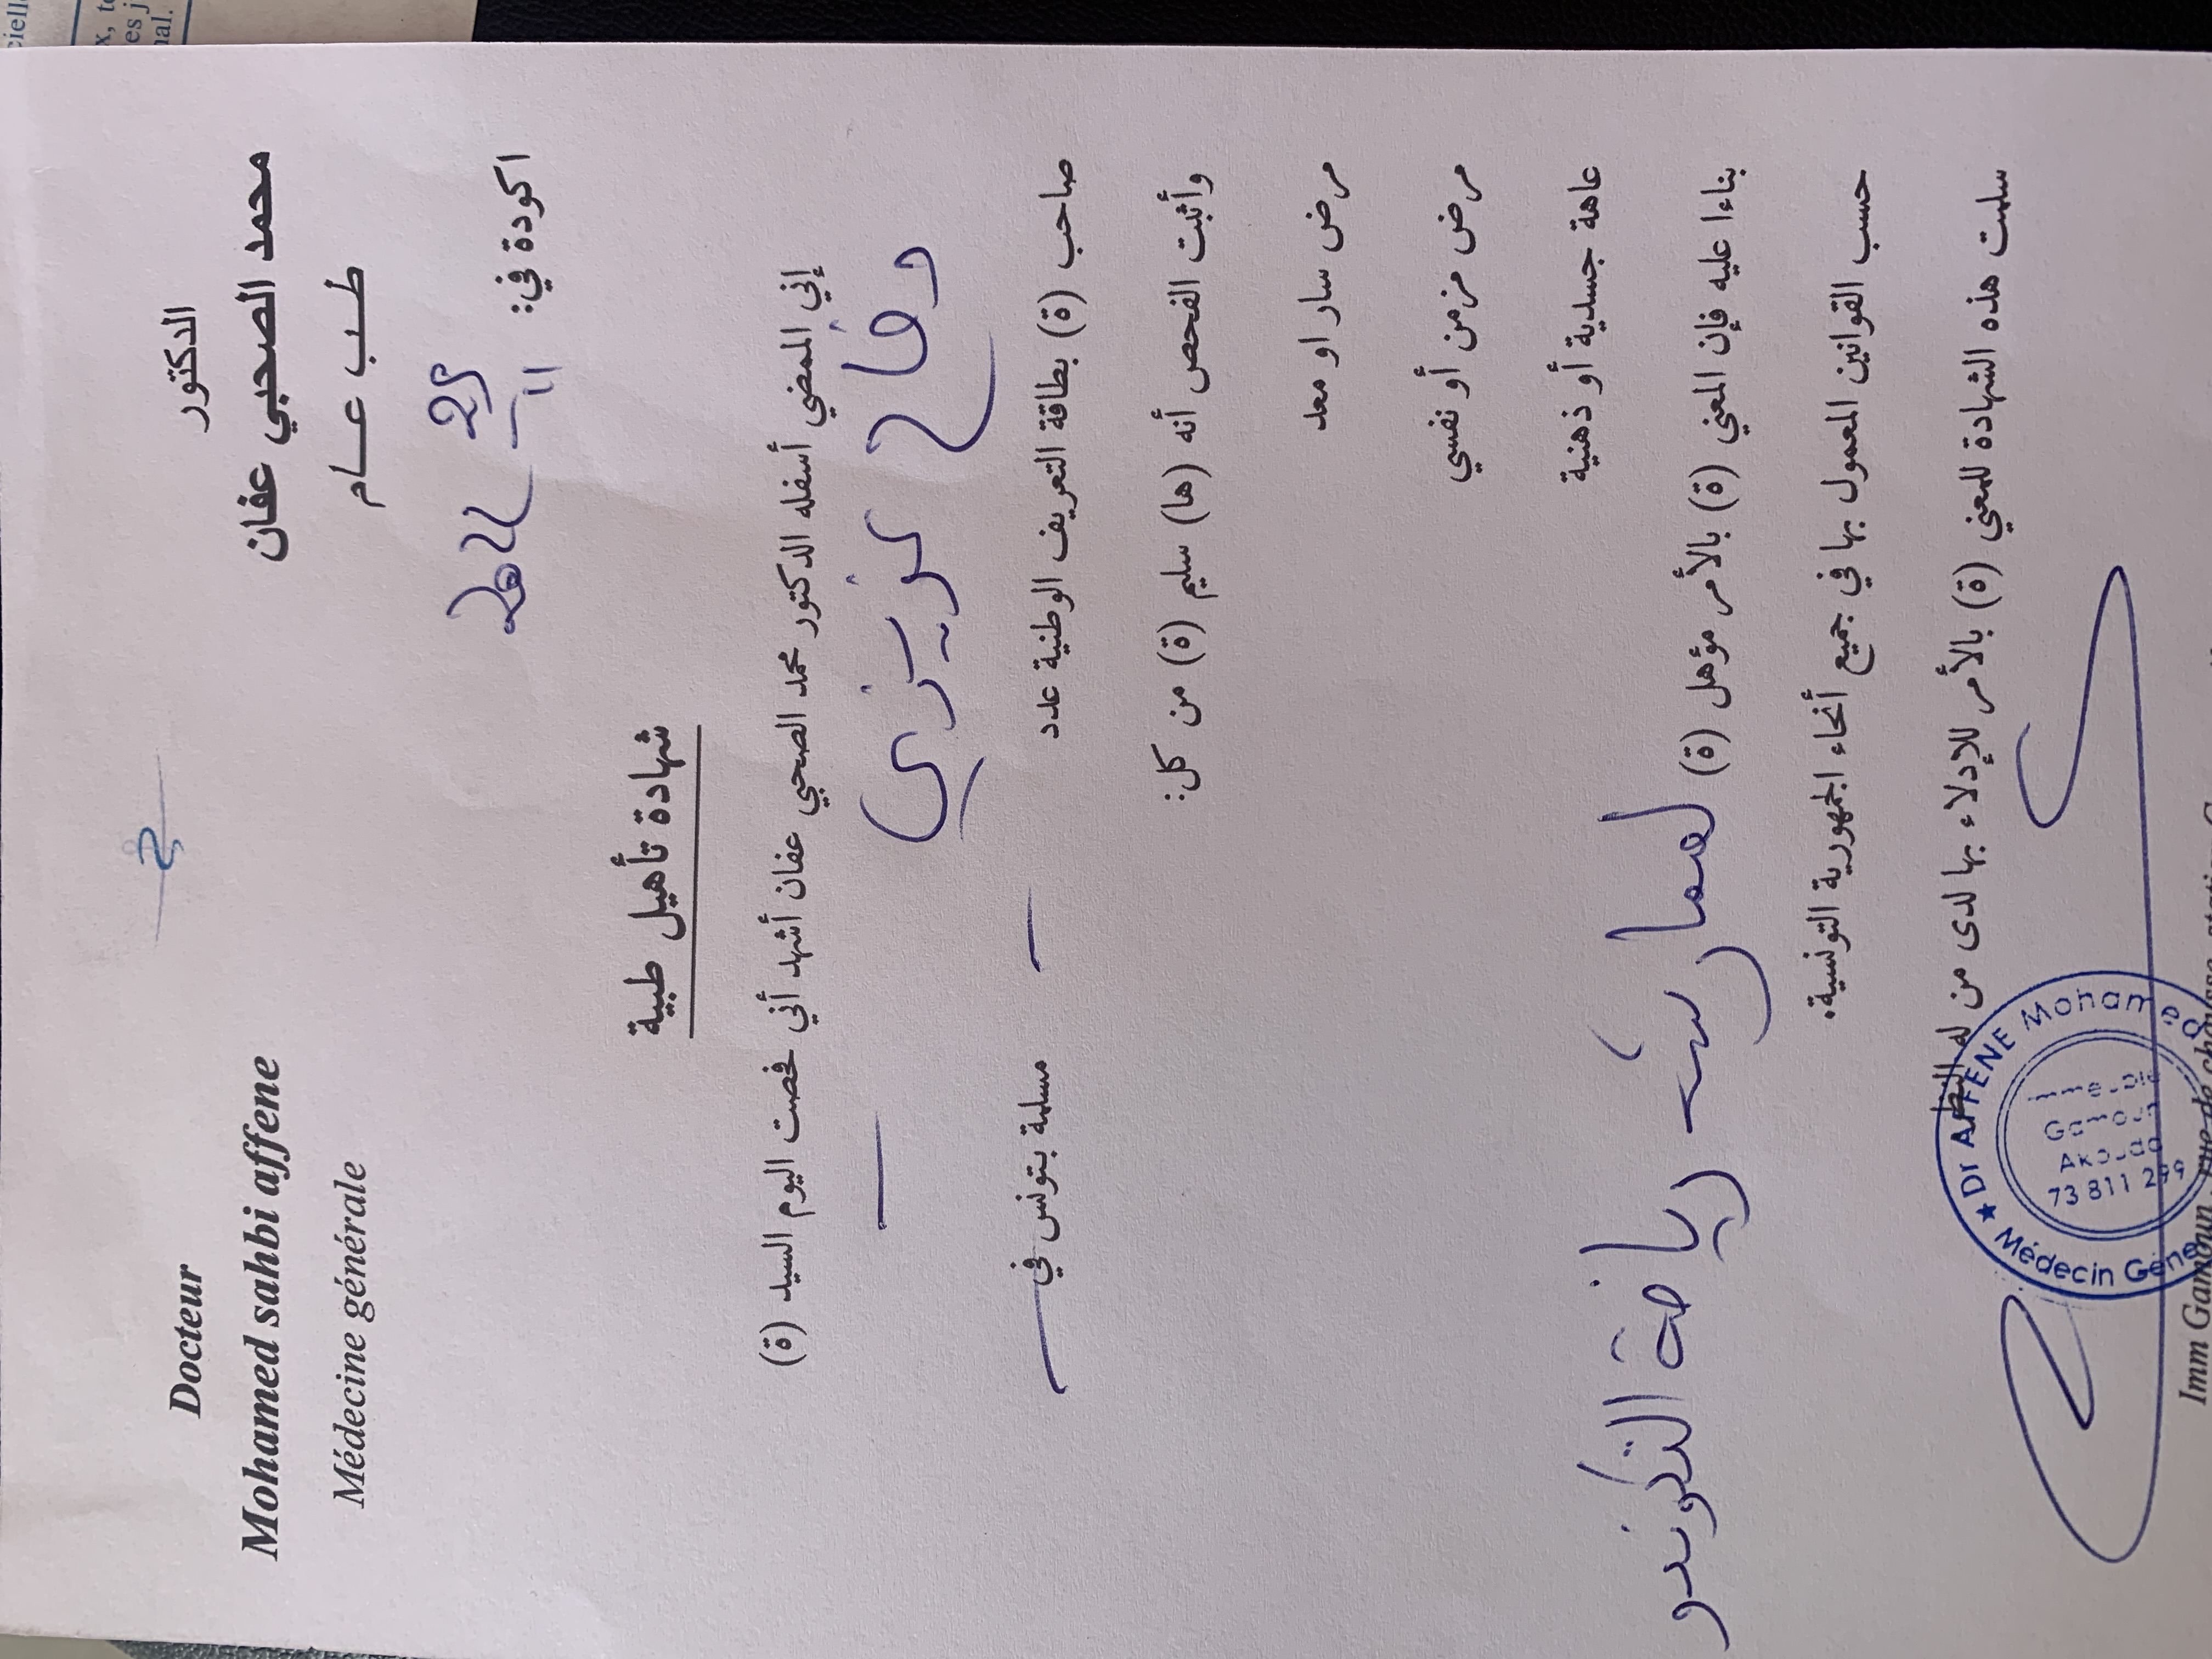 الدكتور
محمد الصحبي عفان
طب عام
Docteur
Mohamed sahbi affene
Médecine générale
اكودة في:
شهادة تأهيل طبية
إني الممضي أسفله الدكتور محمد الصحبي عفان أشهد أني فحصت اليوم السيد (ة)
صاحب (ة) بطاقة التعريف الوطنية عدد مسلمة بتونس في
وأثبت الفحص أنه (ها) سليم (ة) من كل:
مرض سار او معد
مرض مزمن أو نفسي
عاهة جسدية أو ذهنية
بناءا عليه فإن المعني (ة) بالأمر مؤهل (ة) لممارسة رياضة التكوندو
حسب القوانين المعمول بها في جميع أنحاء الجمهورية التونسية.
سلمت هذه الشهادة للمعني (ة) بالأمر للإدلاء بها لدى من له النظر
Dr AFFENE Mohamed
Immeuble
Gamoun
Akouda
73 811 299
Médecin Géné
Imm Gamoun, rue de chausse